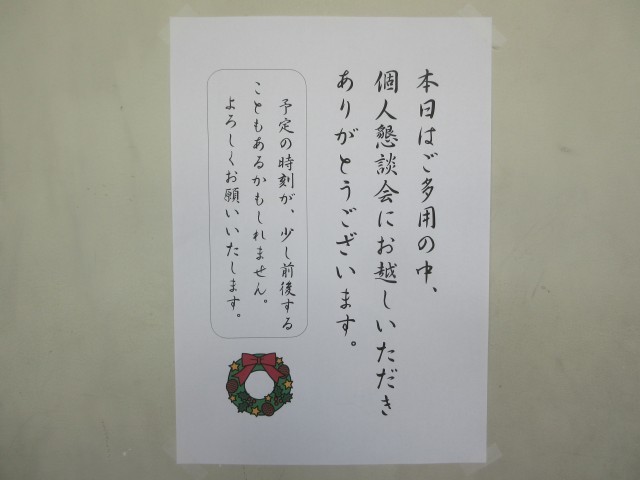 本日はご多用の中、
個人懇談会にお越しいただき
ありがとうございます。
予定の時刻が、少し前後する
こともあるかもしれません。
よろしくお願いいたします。